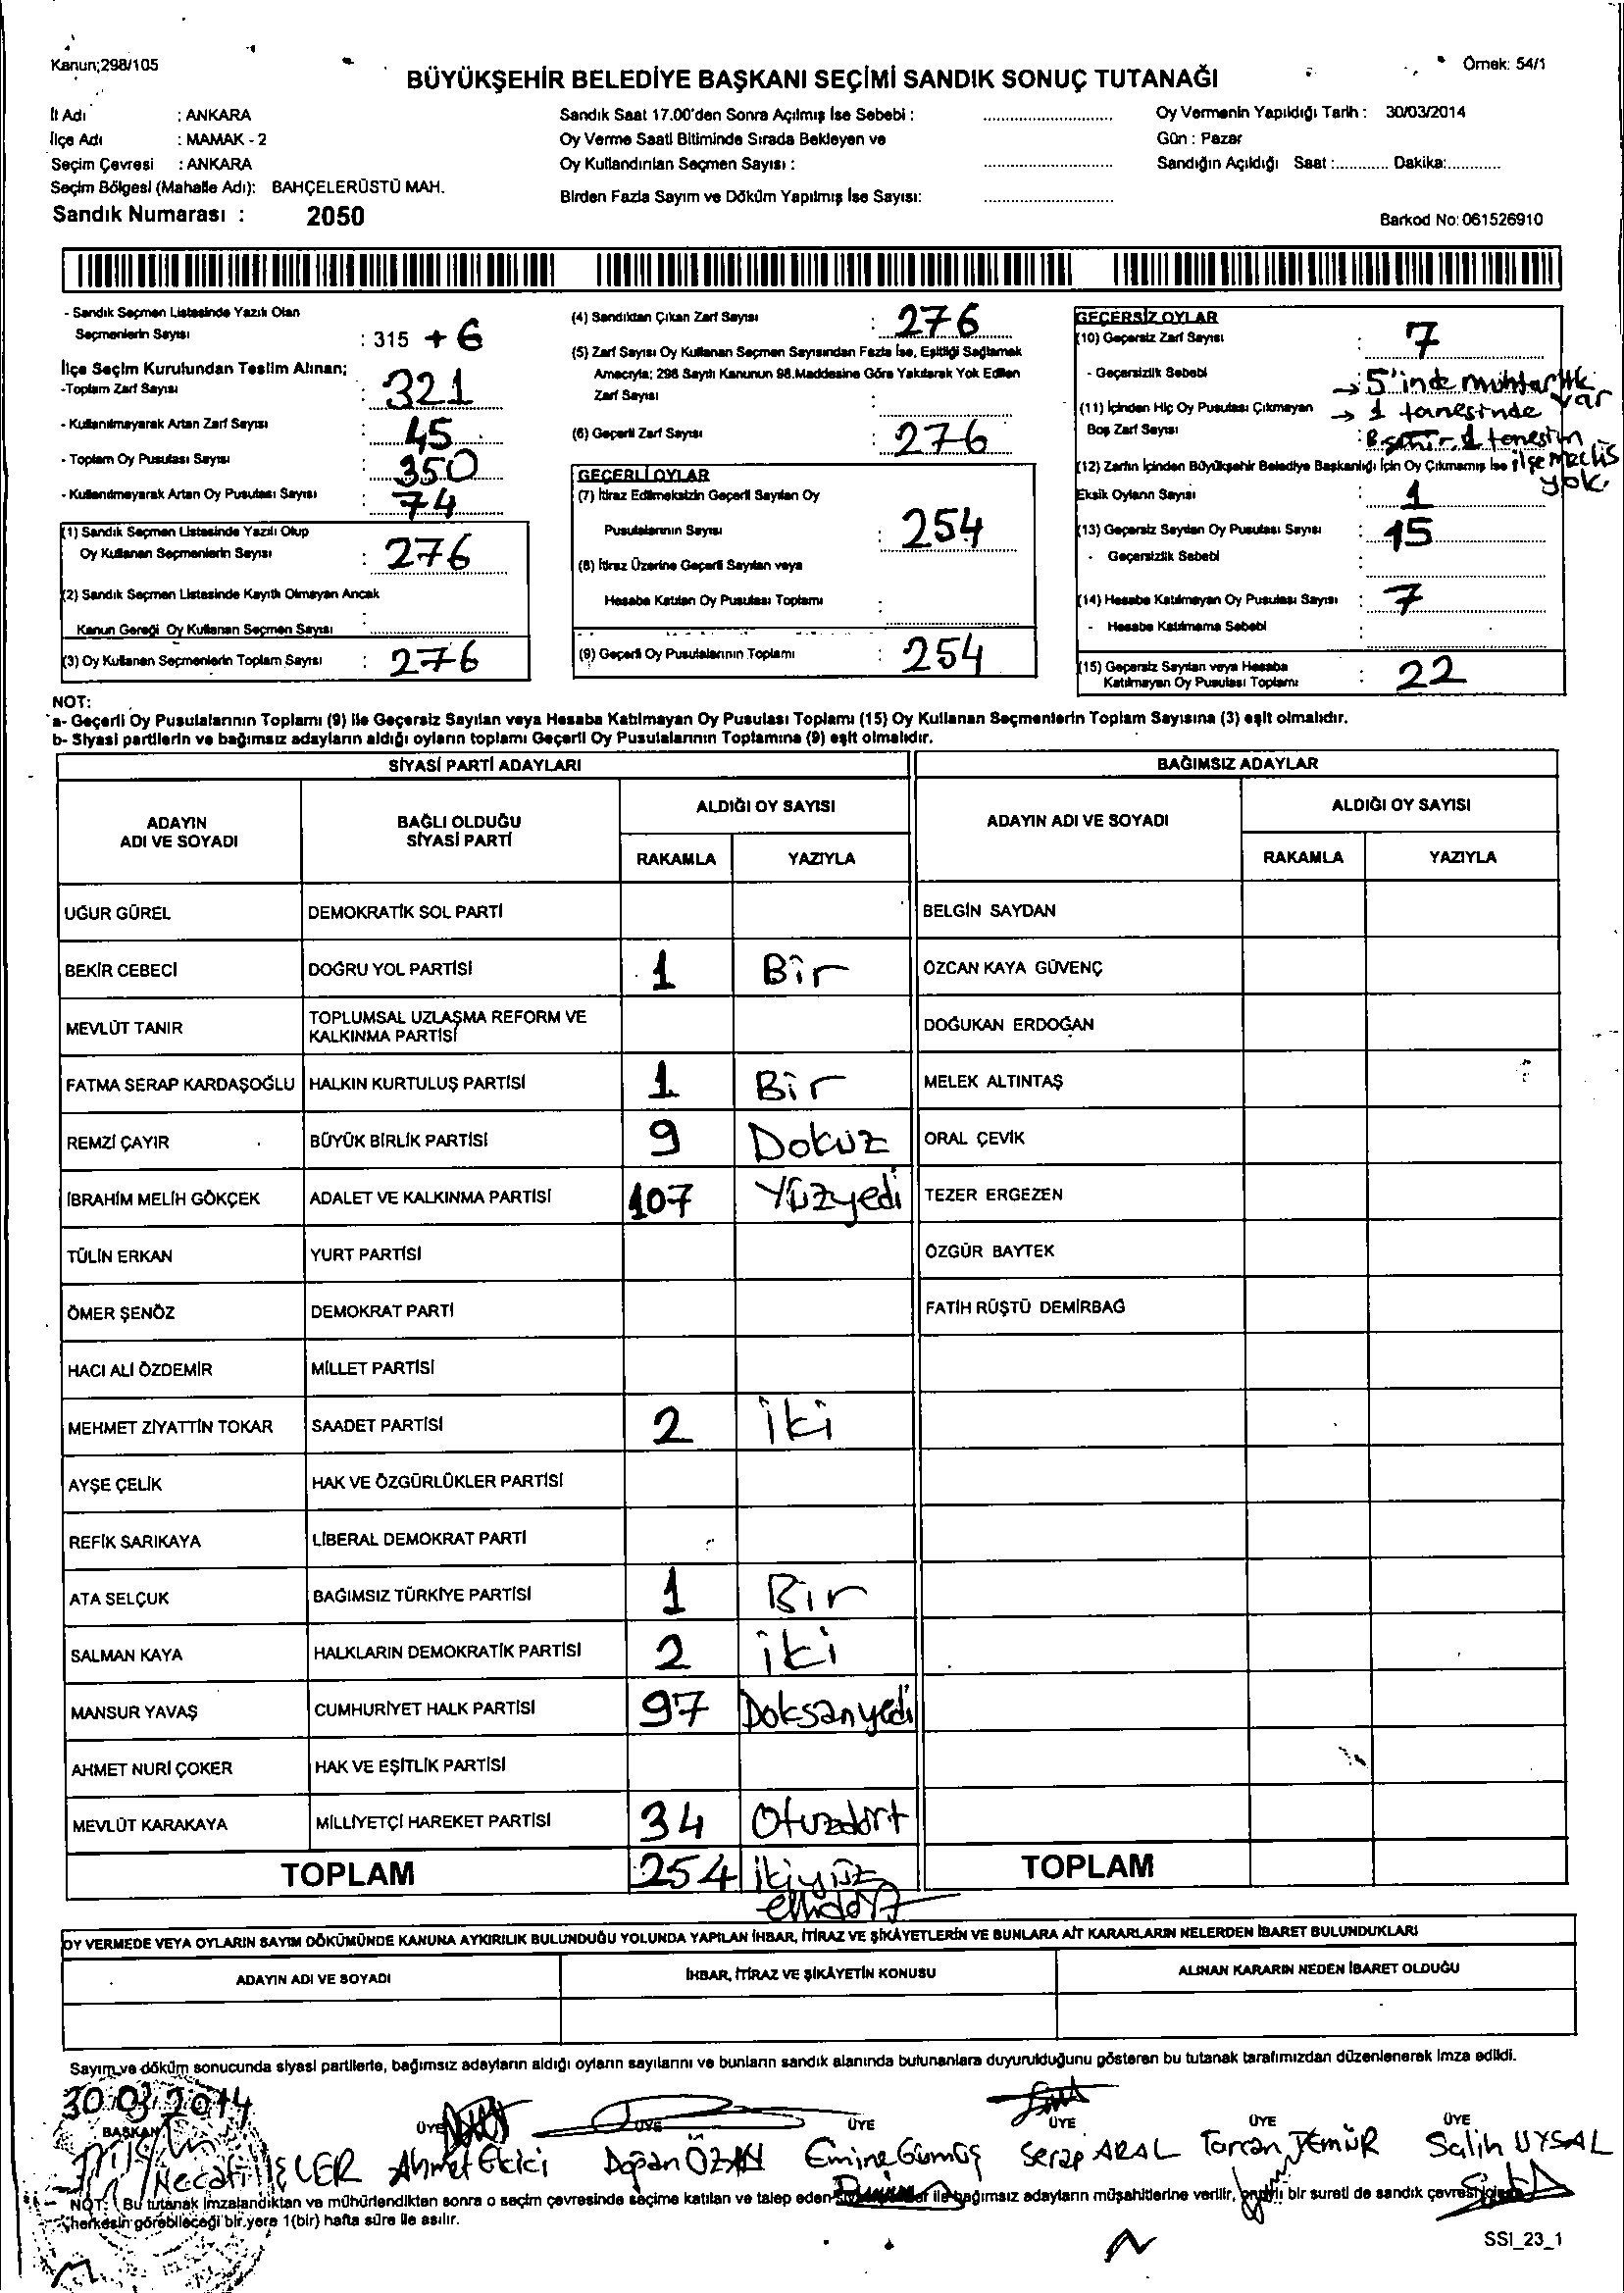 Kanun;298/105
Örnek: 54/1
BÜYÜKŞEHİR BELEDİYE BAŞKANI SEÇİMİ SANDIK SONUÇ TUTANAĞI
İl Adı : ANKARA
İlçe Adı : MAMAK - 2
Seçim Çevresi : ANKARA
Seçim Bölgesi (Mahalle Adı): BAHÇELERÜSTÜ MAH.
Sandık Numarası : 2050
Sandık Saat 17.00'den Sonra Açılmış İse Sebebi :
Oy Verme Saati Bitiminde Sırada Bekleyen ve
Oy Kullandırılan Seçmen Sayısı :
Birden Fazla Sayım ve Döküm Yapılmış İse Sayısı:
Oy Vermenin Yapıldığı Tarih : 30/03/2014
Gün : Pazar
Sandığın Açıldığı Saat :............ Dakika:............
Barkod No: 061526910
- Sandık Seçmen Listesinde Yazılı Olan
Seçmenlerin Sayısı : 315 + 6
İlçe Seçim Kurulundan Teslim Alınan;
-Toplam Zarf Sayısı : 321
- Kullanılmayarak Artan Zarf Sayısı : 45
- Toplam Oy Pusulası Sayısı : 350
- Kullanılmayarak Artan Oy Pusulası Sayısı : 74
(1) Sandık Seçmen Listesinde Yazılı Olup
Oy Kullanan Seçmenlerin Sayısı : 276
(2) Sandık Seçmen Listesinde Kayıtlı Olmayan Ancak
Kanun Gereği Oy Kullanan Seçmen Sayısı :
(3) Oy Kullanan Seçmenlerin Toplam Sayısı : 276
(4) Sandıktan Çıkan Zarf Sayısı : 276
(5) Zarf Sayısı Oy Kullanan Seçmen Sayısından Fazla İse, Eşitliği Sağlamak
Amacıyla; 298 Sayılı Kanunun 98.Maddesine Göre Yakılarak Yok Edilen
Zarf Sayısı :
(6) Geçerli Zarf Sayısı : 276
GEÇERLİ OYLAR
(7) İtiraz Edilmeksizin Geçerli Sayılan Oy
Pusulalarının Sayısı : 254
(8) İtiraz Üzerine Geçerli Sayılan veya
Hesaba Katılan Oy Pusulası Toplamı :
(9) Geçerli Oy Pusulalarının Toplamı : 254
GEÇERSİZ OYLAR
(10) Geçersiz Zarf Sayısı : 7
- Geçersizlik Sebebi : → 5'inde muhtarlık var
(11) İçinden Hiç Oy Pusulası Çıkmayan → 1 tanesinde
Boş Zarf Sayısı : B.şehir, 1 tanesin
(12) Zarfın İçinden Büyükşehir Belediye Başkanlığı İçin Oy Çıkmamış İse ilçe meclis yok.
Eksik Oyların Sayısı : 1
(13) Geçersiz Sayılan Oy Pusulası Sayısı : 15
- Geçersizlik Sebebi :
(14) Hesaba Katılmayan Oy Pusulası Sayısı : 7
- Hesaba Katılmama Sebebi :
(15) Geçersiz Sayılan veya Hesaba
Katılmayan Oy Pusulası Toplamı : 22
NOT:
a- Geçerli Oy Pusulalarının Toplamı (9) ile Geçersiz Sayılan veya Hesaba Katılmayan Oy Pusulası Toplamı (15) Oy Kullanan Seçmenlerin Toplam Sayısına (3) eşit olmalıdır.
b- Siyasi partilerin ve bağımsız adayların aldığı oyların toplamı Geçerli Oy Pusulalarının Toplamına (9) eşit olmalıdır.
SİYASİ PARTİ ADAYLARI BAĞIMSIZ ADAYLAR
ADAYIN ADI VE SOYADI BAĞLI OLDUĞU SİYASİ PARTİ ALDIĞI OY SAYISI ADAYIN ADI VE SOYADI ALDIĞI OY SAYISI
RAKAMLA YAZIYLA RAKAMLA YAZIYLA
UĞUR GÜREL DEMOKRATİK SOL PARTİ BELGİN SAYDAN
BEKİR CEBECİ DOĞRU YOL PARTİSİ 1 Bir ÖZCAN KAYA GÜVENÇ
MEVLÜT TANIR TOPLUMSAL UZLAŞMA REFORM VE KALKINMA PARTİSİ DOĞUKAN ERDOĞAN
FATMA SERAP KARDAŞOĞLU HALKIN KURTULUŞ PARTİSİ 1 Bir MELEK ALTINTAŞ
REMZİ ÇAYIR BÜYÜK BİRLİK PARTİSİ 9 Dokuz ORAL ÇEVİK
İBRAHİM MELİH GÖKÇEK ADALET VE KALKINMA PARTİSİ 107 Yüzyedi TEZER ERGEZEN
TÜLİN ERKAN YURT PARTİSİ ÖZGÜR BAYTEK
ÖMER ŞENÖZ DEMOKRAT PARTİ FATİH RÜŞTÜ DEMİRBAĞ
HACI ALİ ÖZDEMİR MİLLET PARTİSİ
MEHMET ZİYATTİN TOKAR SAADET PARTİSİ 2 iki
AYŞE ÇELİK HAK VE ÖZGÜRLÜKLER PARTİSİ
REFİK SARIKAYA LİBERAL DEMOKRAT PARTİ
ATA SELÇUK BAĞIMSIZ TÜRKİYE PARTİSİ 1 Bir
SALMAN KAYA HALKLARIN DEMOKRATİK PARTİSİ 2 iki
MANSUR YAVAŞ CUMHURİYET HALK PARTİSİ 97 Doksanyedi
AHMET NURİ ÇOKER HAK VE EŞİTLİK PARTİSİ
MEVLÜT KARAKAYA MİLLİYETÇİ HAREKET PARTİSİ 34 Otuzdört
TOPLAM 254 ikiyüz ellidört TOPLAM
OY VERMEDE VEYA OYLARIN SAYIM DÖKÜMÜNDE KANUNA AYKIRILIK BULUNDUĞU YOLUNDA YAPILAN İHBAR, İTİRAZ VE ŞİKÂYETLERİN VE BUNLARA AİT KARARLARIN NELERDEN İBARET BULUNDUKLARI
ADAYIN ADI VE SOYADI İHBAR, İTİRAZ VE ŞİKÂYETİN KONUSU ALINAN KARARIN NEDEN İBARET OLDUĞU
Sayım ve döküm sonucunda siyasi partilerle, bağımsız adayların aldığı oyların sayılarını ve bunların sandık alanında bulunanlara duyurulduğunu gösteren bu tutanak tarafımızdan düzenlenerek imza edildi.
30.03.2014
BAŞKAN ÜYE ÜYE ÜYE ÜYE ÜYE ÜYE
Necati İŞLER Ahmet Ekici Doğan ÖZAN Emine Gümüş Serap ARAL Tarcan DEMÜR Salih UYSAL
NOT: Bu tutanak imzalandıktan ve mühürlendikten sonra o seçim çevresinde seçime katılan ve talep eden ile bağımsız adayların müşahitlerine verilir, onaylı bir sureti de sandık çevresi içinde
herkesin görebileceği bir yere 1(bir) hafta süre ile asılır.
SSI_23_1